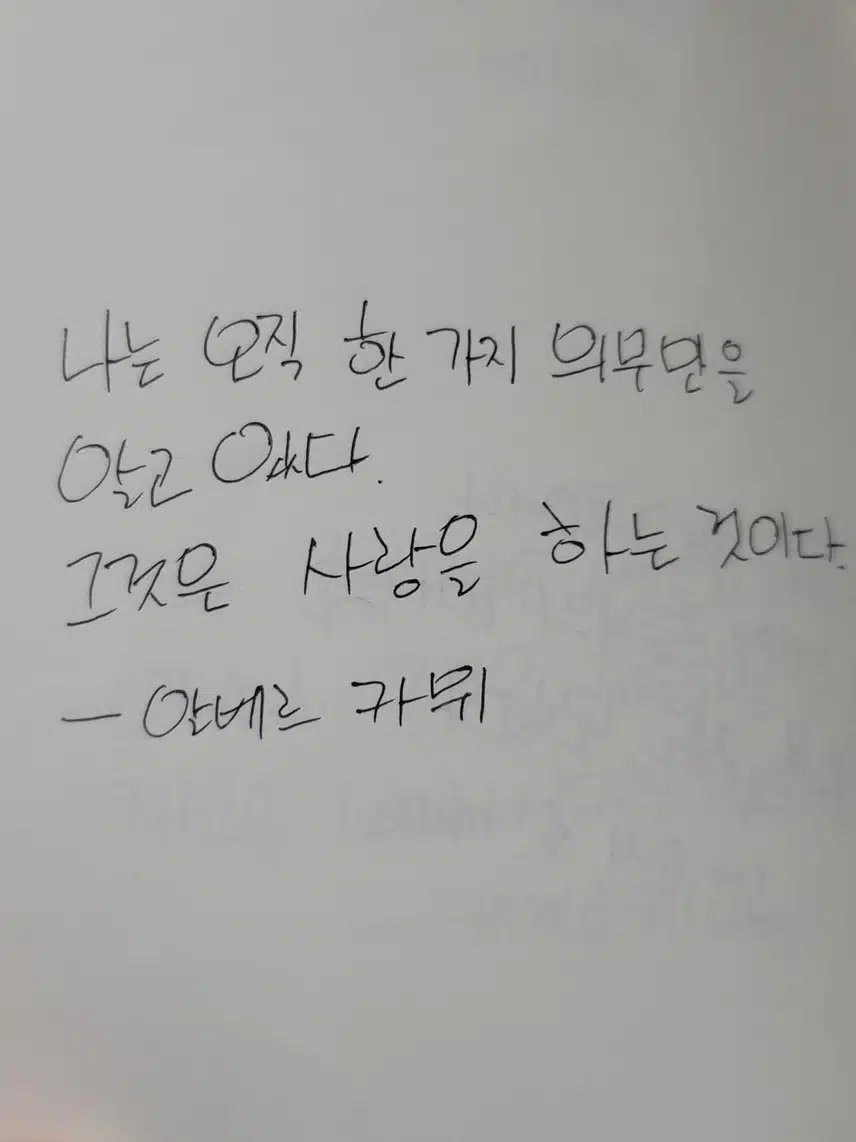 나는 오직 한 가지 의무만을
알고 있다.
그것은 사랑을 하는 것이다.
- 알베르 카뮈